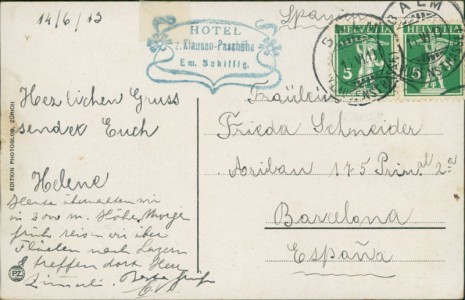 14/6/13
HOTEL
z. Klausen-Passhöhe
Em. Schillig.
Spanien
BALM
HELVETIA HELVETIA
5 5
Herzlichen Gruss
sendet Euch
Helene
Heute übernachten wir
in 2000 m. Höhe, Morgen
früh reisen wir über
Flüelen nach Luzern
& treffen dort Herr
Fräulein
Frieda Schneider
Aribau 175 Prinpl 2a
Barcelona
España
EDITION PHOTOGLOB, ZÜRICH
PZ